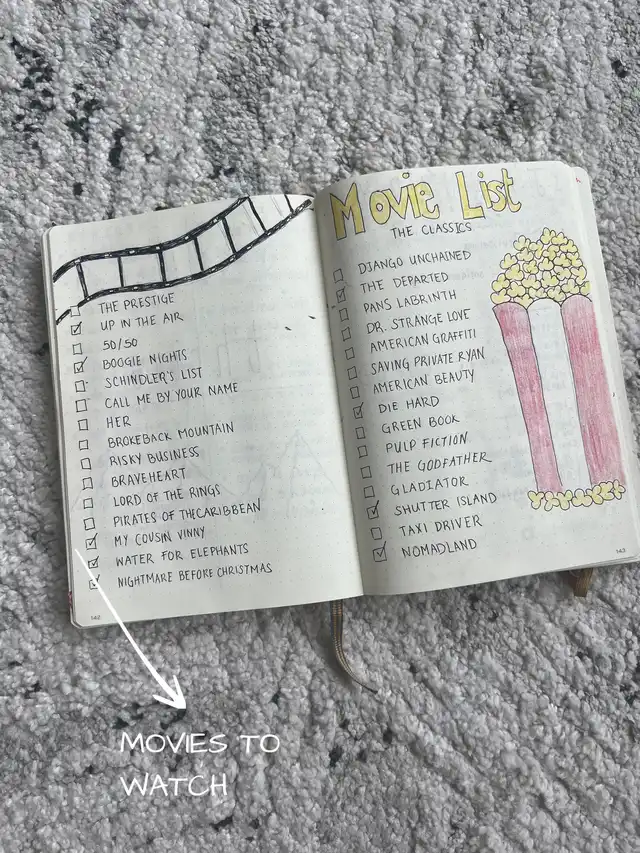 THE PRESTIGE
UP IN THE AIR
50/50
BOOGIE NIGHTS
SCHINDLER'S LIST
CALL ME BY YOUR NAME
HER
BROKEBACK MOUNTAIN
RISKY BUSINESS
BRAVEHEART
LORD OF THE RINGS
PIRATES OF THE CARIBBEAN
MY COUSIN VINNY
WATER FOR ELEPHANTS
NIGHTMARE BEFORE CHRISTMAS
142
Movie List
THE CLASSICS
DJANGO UNCHAINED
THE DEPARTED
PANS LABRINTH
DR. STRANGE LOVE
AMERICAN GRAFFITI
SAVING PRIVATE RYAN
AMERICAN BEAUTY
DIE HARD
GREEN BOOK
PULP FICTION
THE GODFATHER
GLADIATOR
SHUTTER ISLAND
TAXI DRIVER
NOMADLAND
143
MOVIES TO
WATCH